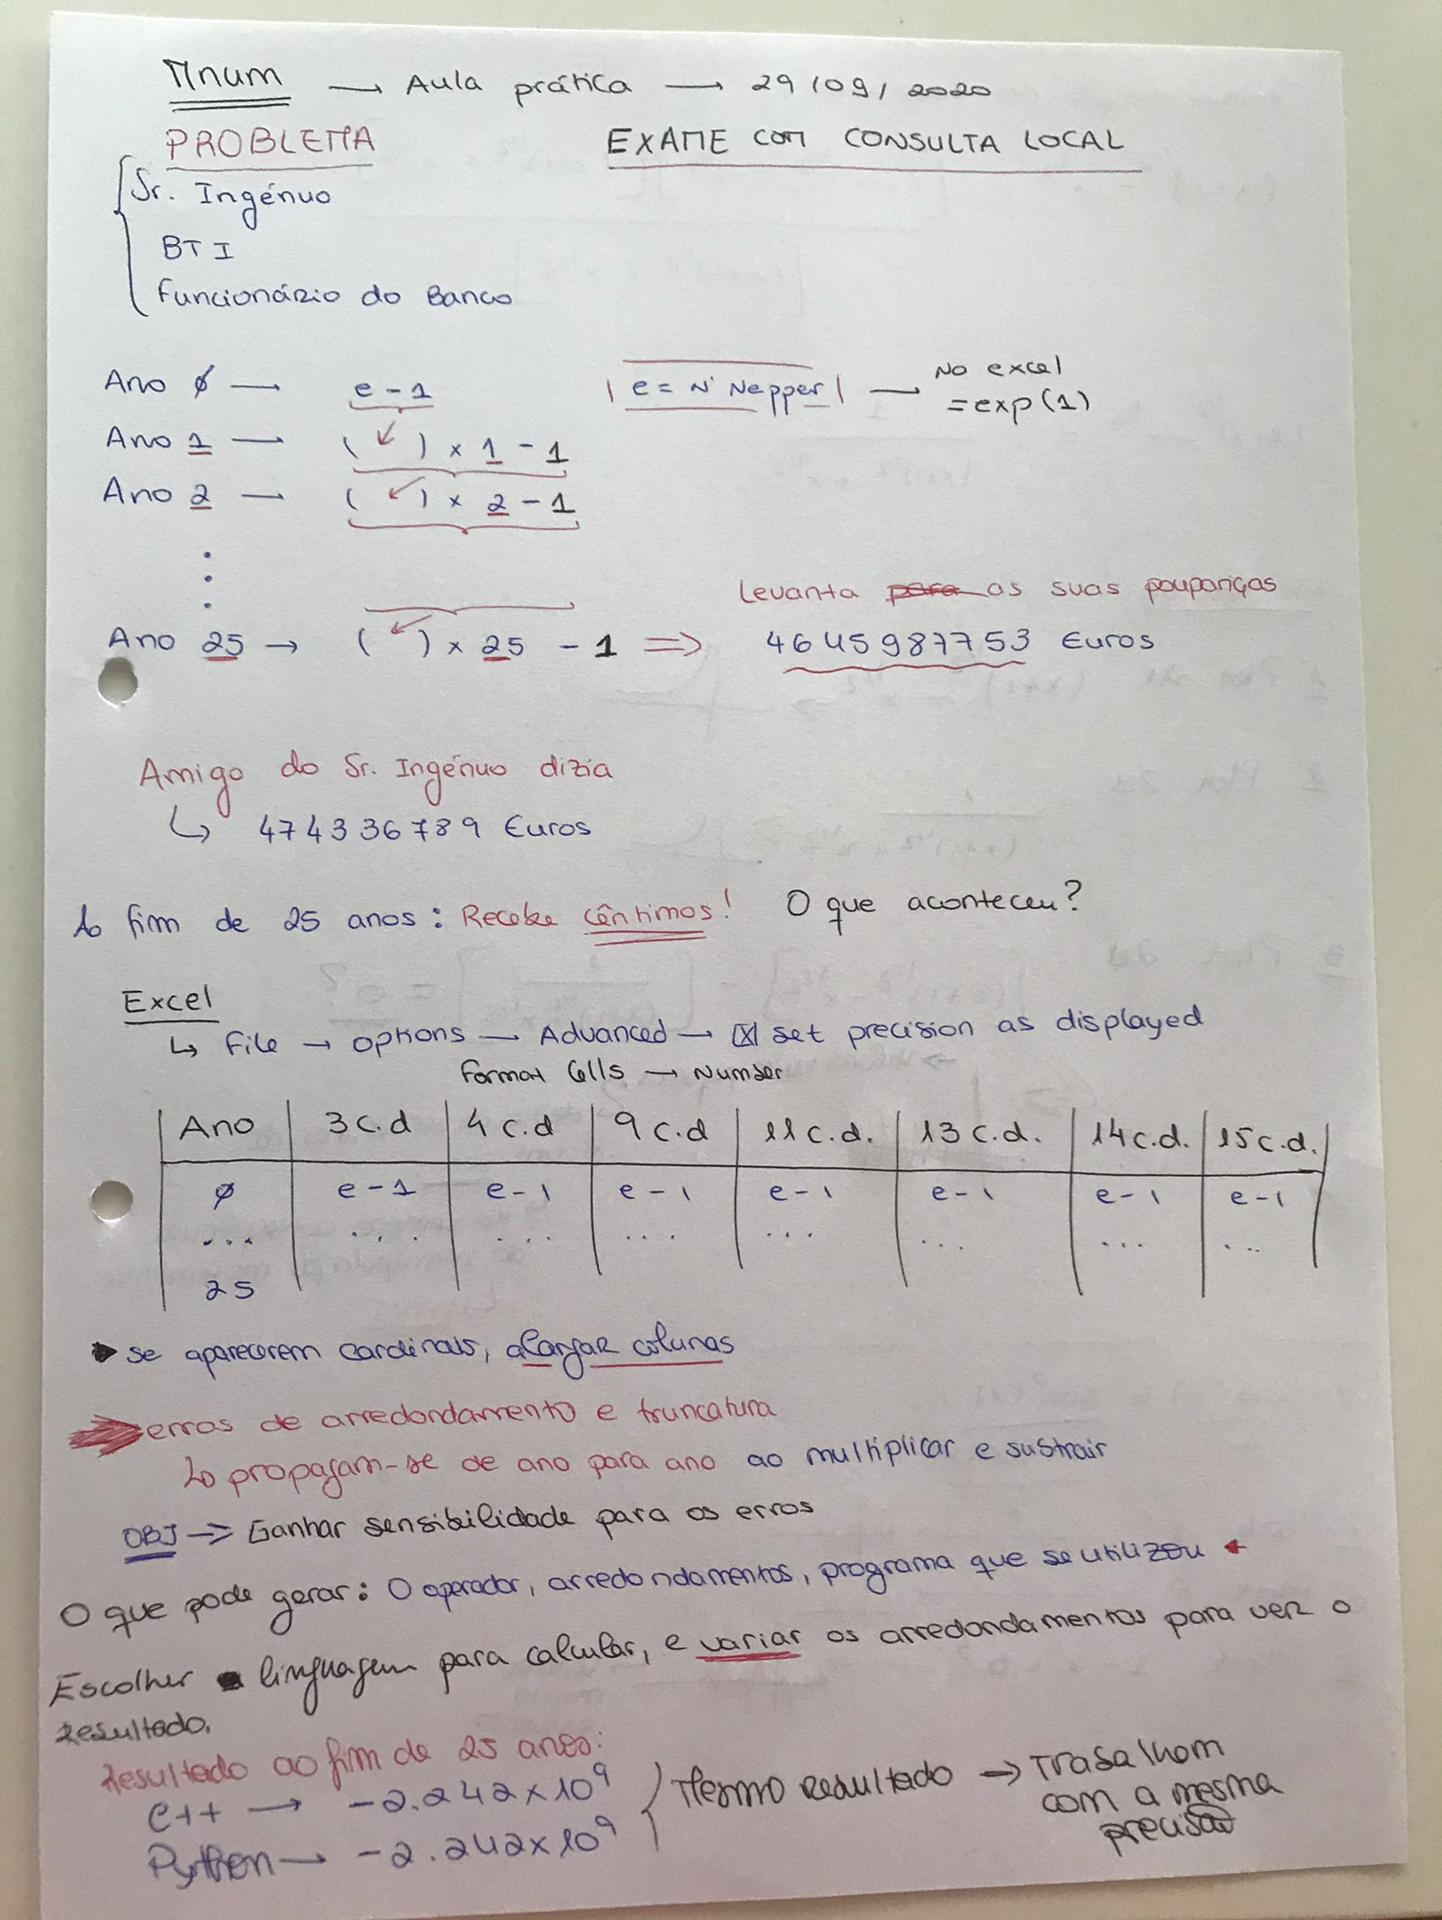 Mnum → Aula prática → 29/09/2020
PROBLEMA
EXAME COM CONSULTA LOCAL
Sr. Ingénuo
BTI
Funcionário do Banco
Ano 0 — e-1
| e = Nº Nepper | — No excel
=exp(1)
Ano 1 — ( ) × 1 - 1
Ano 2 — ( ) × 2 - 1
Levanta para as suas poupanças
Ano 25 → ( ) × 25 - 1 ⇒ 4645987753 Euros
Amigo do Sr. Ingénuo dizia
↳ 474336789 Euros
Ao fim de 25 anos: Recebe cêntimos! O que aconteceu?
Excel
↳ File → options → Advanced → ☒ set precision as displayed
Format Cells → Number
Ano | 3 c.d | 4 c.d | 9 c.d | 11 c.d. | 13 c.d. | 14 c.d. | 15 c.d.
0 | e-1 | e-1 | e-1 | e-1 | e-1 | e-1 | e-1
... | ... | ... | ... | ... | ... | ... | ...
25
se aparecerem cardinais, alargar colunas
⇒ erros de arredondamento e truncatura
↳ propagam-se de ano para ano ao multiplicar e sustrair
OBJ → Ganhar sensibilidade para os erros
O que pode gerar: O operador, arredondamentos, programa que se utilizou ←
Escolher linguagem para calcular, e variar os arredondamentos para ver o
resultado.
Resultado ao fim de 25 anos:
C++ → -2.242×10⁹
Python → -2.242×10⁹
Mesmo resultado → Trabalham
com a mesma
precisão